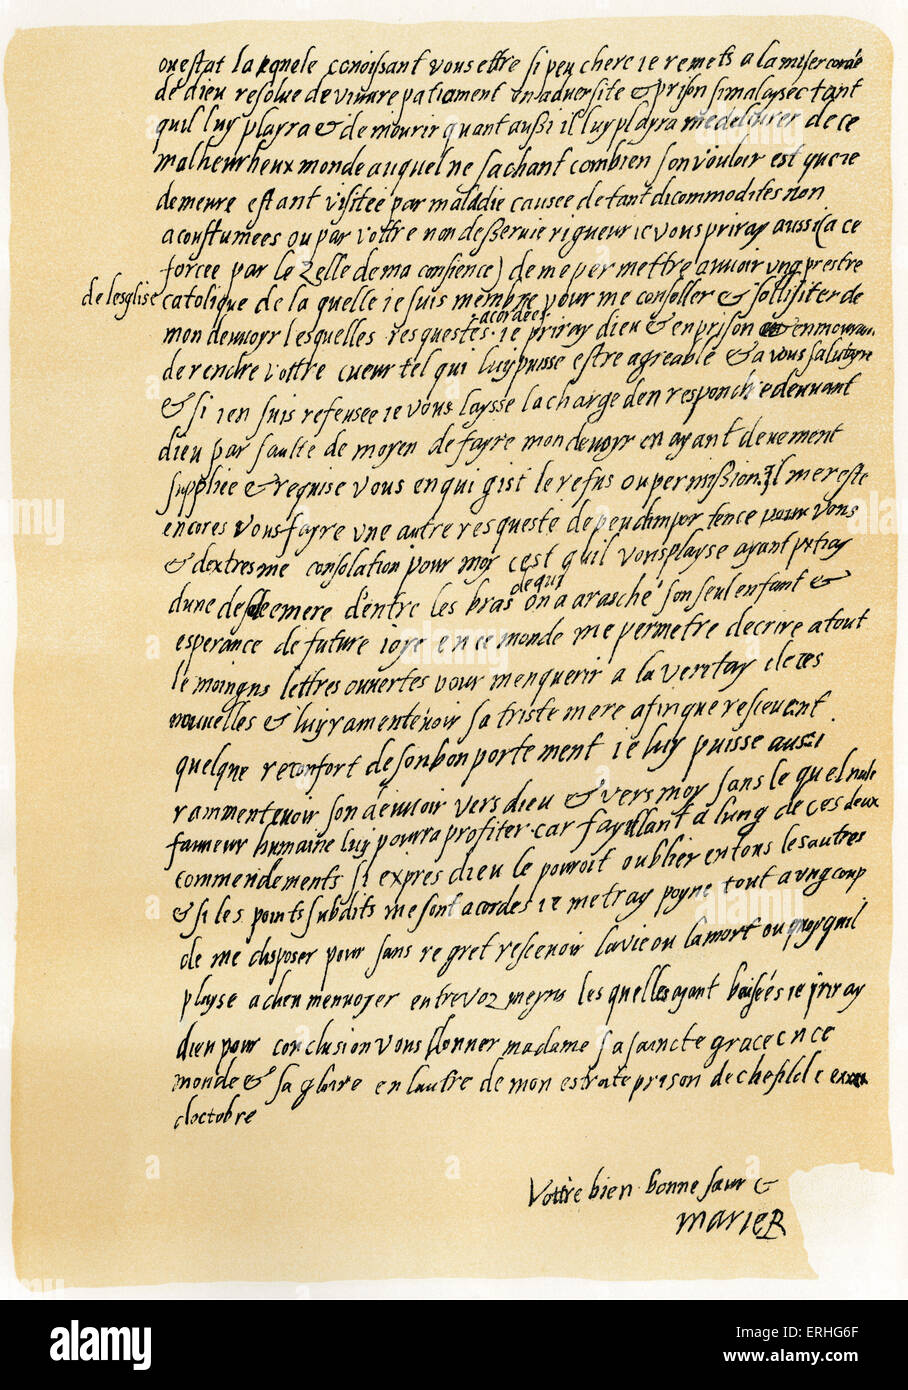 ou estat la quele conoissant vous ettre si peu chere ie remets a la misericorde
de dieu resolue de vivvre patiament en adversite & prison si malaysee tant
quil luy playra & de mourir quant aussi il luy playra me delivrer de ce
malheurheux monde auquel ne sachant combien son vouloir est que ie
demeure estant visitee par maladie causee de tant dicommodites non
acoustumees ou par vottre non desservie rigueur ie vous priray aussi (a ce
forcee par le zelle de ma consience) de me permettre avvoir ung prestre
de lesglise catolique de la quelle ie suis membre pour me conseller & sollisiter de
mon devvoyr lesquelles resquestes acordees ie priray dieu & en prison & en mourant
de rendre vottre cueur tel qui luy puisse estre agreable & a vous salutayre
& si ien suis refeusee ie vous laysse la charge den respondre devvant
dieu par faulte de moyen de fayre mon devoyr en ayant devement
suppliee & requise vous en qui gist le refus ou permission. Il me reste
encores vous fayre vne autre resqueste de peu dimportence pour vous
& dextresme consolation pour moy cest quil vous playse ayant pitay
dune desolee mere d'entre les bras de qui on a arasché son seul enfant &
esperance de future ioye en ce monde me permetre decrire a tout
le moingns lettres ouvertes pour m'enquerir a la veritay de ces
nouvelles & luy ramentevoir sa triste mere afin que resevent
quelque reconfort de son bon portement ie luy puisse aussi
rammentevoir son devvoir vers dieu & vers moy sans le quel nule
faveur humaine luy pourra profiter car fayllant a lung de ces deux
commendements si expres dieu le pourroit oublier en tous les autres
& si les points subdits me sont acordes ie metray poyne tout a ung coup
de me disposer pour sans regret rescevoir la vie ou la mort ou quoy quil
playse a dieu m'envoyer entre voz meyns les quelles ayant baisées ie priray
dieu pour conclusion vous donner madame sa saincte grace en ce
monde & sa gloire en lautre de mon estroite prison de chefild ce
doctobre
Vottre bien bonne sœur &
Marie R
alamy
a
alamy stock photo
ERHG6F
www.alamy.com